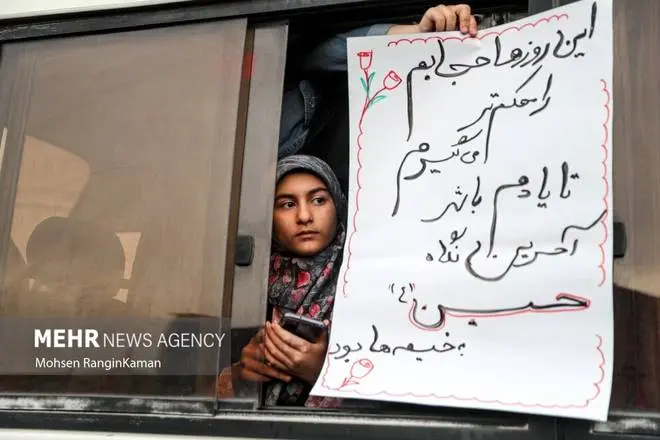 این روزها حجابم
را محکم تر
می گیرم
تا یادم باشد
آخرین نگاه
حسین (ع)
به خیمه ها بود
MEHR NEWS AGENCY
Mohsen RanginKaman